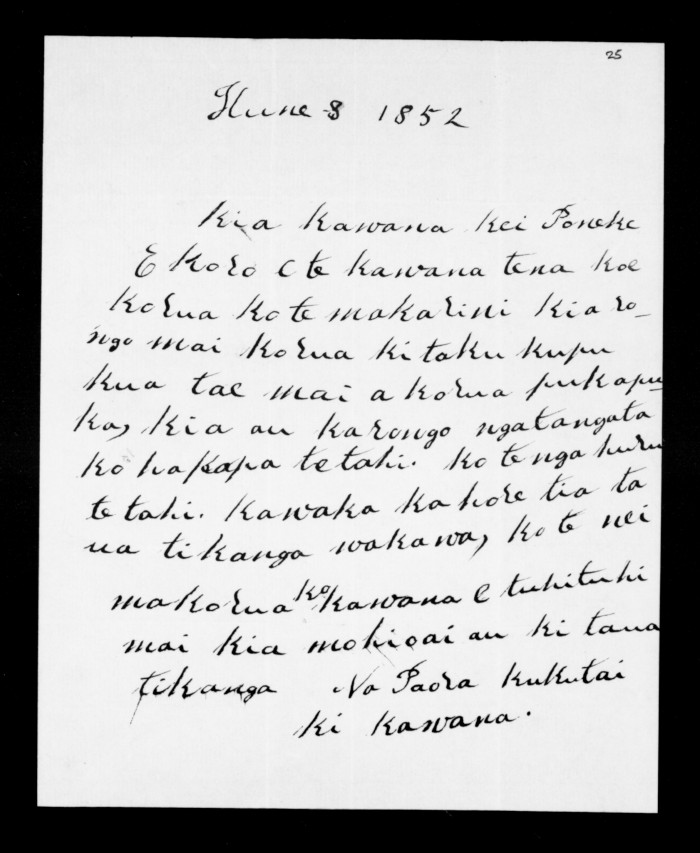 25
Hune 8 1852
Kia Kawana Kei Poneke
E Koro e te Kawana tena koe
Korua ko te makarini Kia ro_
ngo mai Korua ki taku kupu
kua tae mai a korua pukapu
ka, kia au ka rongo nga tangata
ko hakapa te tahi. Ko te nga huru
te tahi. Kawaka ka hore tia ta
ua tikanga wakawa, Ko te nei
ma Korua ko Kawana e tuhituhi
mai kia mohio ai au ki taua
tikanga Na Paora Kukutai
Ki Kawana.